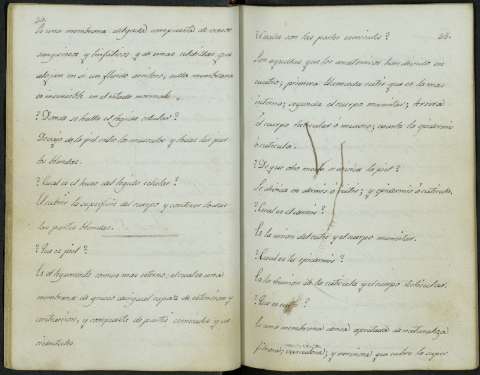 Es una membrana delgada compuesta de vasos
sanguineos y linfaticos y de unas celdillas que
alojan en si un fluido seroso, esta membrana
es insensible en el estado normal.
? Donde se halla el tegido celular?
Debajo de la piel entre los musculos y hacia las par
tes blandas.
? Cual es el husso del tegido celular?
El cubrir la superficie del cuerpo y contener
las partes blandas.
? Que es piel?
Es el tegumento comun mas esterno, el cual es una
membrana de grueso desigual capaz de estension y
contracion, y compuesta de partes comunes y
? Cuales son las partes
26.
Son aquellas que los anatomicos han dividido en
cuatro; primera llamada cutis que es la mas
interna; segunda el cuerpo mamilar; tercera
el cuerpo reticular ó mucoso; cuarta la epidermis
ó cuticula.
? De que otro modo se divide la piel?
Se divide en dermis ó cutis; y epidermis ó cuticula.
? Cual es el dermis?
Es la union del cutis y el cuerpo mamilar.
? Cual es la epidermis?
Es la union de la cuticula y el cuerpo reticular.
? Que es cutis?
Es una membrana densa apretada de naturaleza
fibrosa, vasculosa, y nerviosa que cubre la super